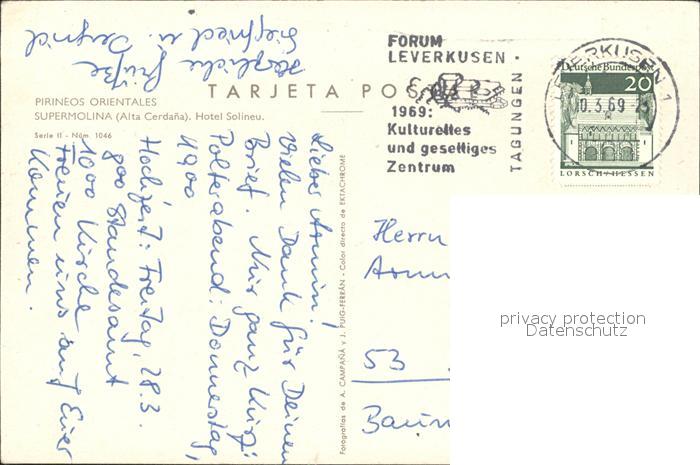 Herzliche Grüße
Siegfried u.
TARJETA POS
PIRINEOS ORIENTALES
SUPERMOLINA (Alta Cerdaña). Hotel Solineu.
Serie II - Núm. 1046
Lieber Armin!
Vielen Dank für Deinen
Brief. Nur ganz kurz:
Polterabend: Donnerstag,
1900
Hochzeit: Freitag, 28.3.
800 Standesamt
1000 Kirche
Freuen uns auf Euer
Kommen.
Fotografías de A. CAMPAÑÁ y J. PUIG-FERRÁN - Color directo de EKTACHROME
FORUM
LEVERKUSEN
1969:
Kulturelles
und geselliges
Zentrum
TAGUNGEN
LEVERKUSEN 1
0.3.69
Deutsche Bundespost
20
LORSCH/HESSEN
Herrn
53
privacy protection
Datenschutz